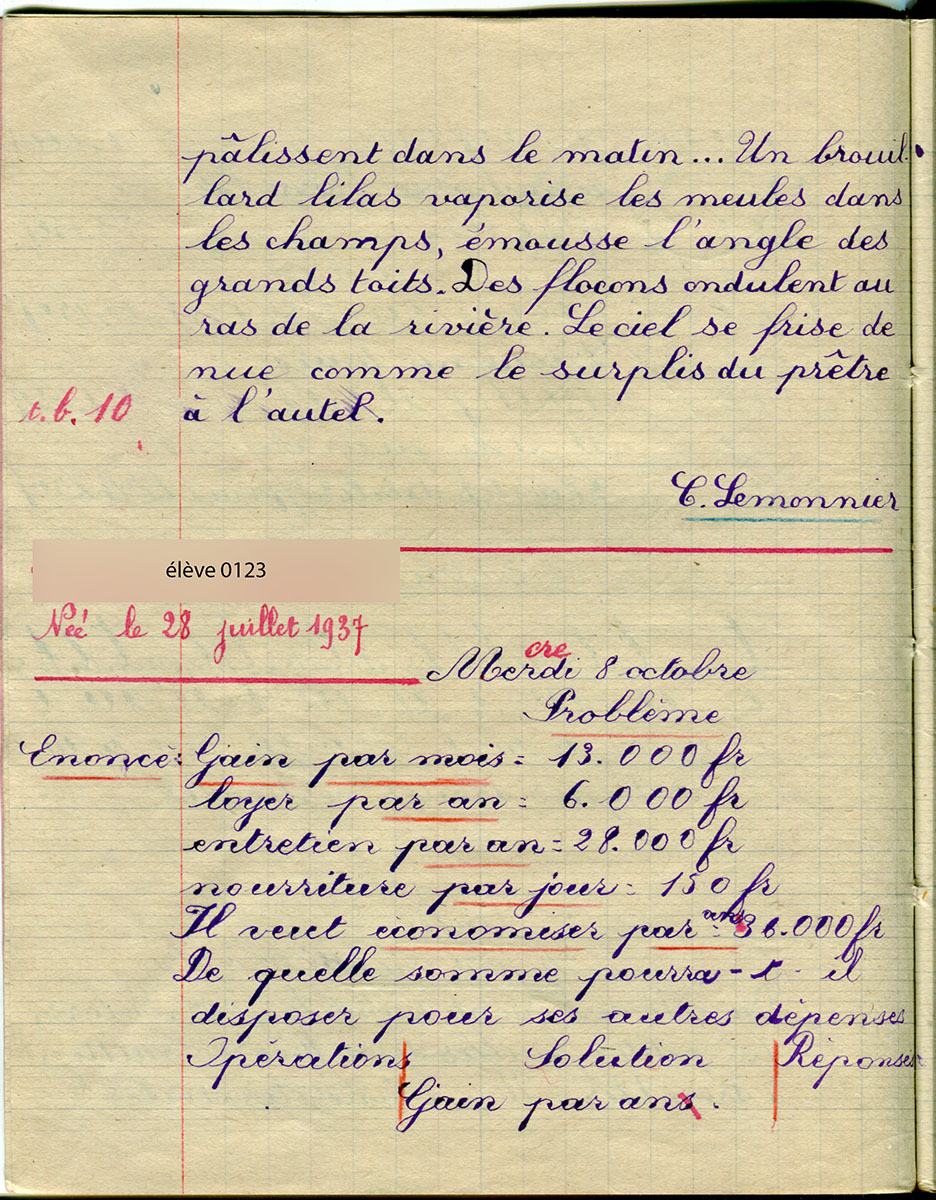 pâlissent dans le matin... Un brouil-
lard lilas vaporise les meules dans
les champs, émousse l'angle des
grands toits. Des flocons ondulent au
ras de la rivière. Le ciel se frise de
nue comme le surplis du prêtre
t.b. 10 à l'autel.
C. Lemonnier
élève 0123
Née le 28 juillet 1937
cre
Merdi 8 octobre
Problème
Enoncé: Gain par mois = 13.000 fr
loyer par an = 6.000 fr
entretien par an = 28.000 fr
nourriture par jour = 150 fr
Il veut économiser par an = 36.000 fr
De quelle somme pourra-t-il
disposer pour ses autres dépenses
Opérations Solution Réponses
Gain par ans.